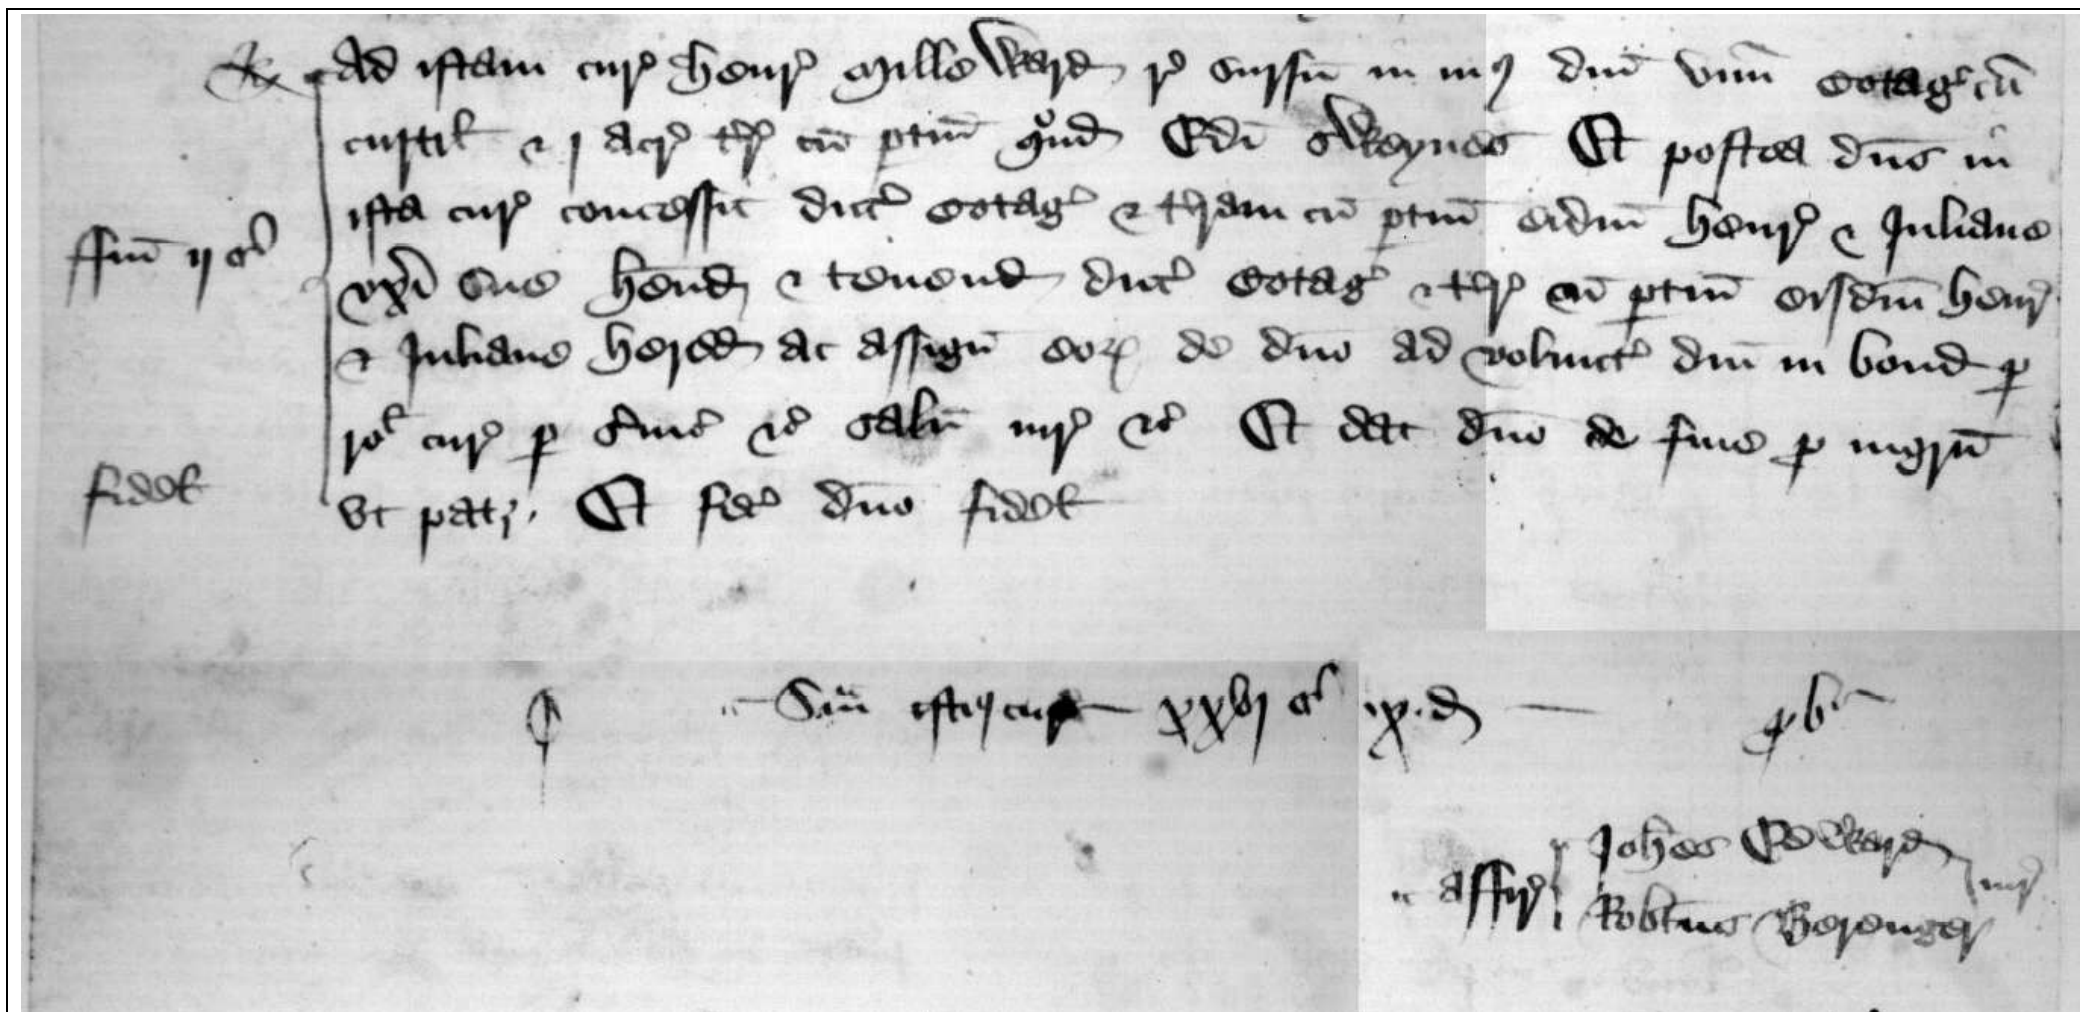 Ad istam cur' Henr' Milleward r' sursū in man9 dnī vnū Cotag' cū
curtil' & j acr' t'r' cū ptin' qnd' Edī Sweynes Et postea dns in
ffin' ij s'
ista cur' concessit dict' Cotag' & t'ram cū ptin' eidm Henr' & Juliane
vxi sue hend' & tenend' dict' Cotag' & t'r' cū ptin' eisdm Henr'
& Juliane hered' ac assign' eor' de dno ad volunt' dnī in bond' p
rot' cur' p s'uic' &c' saluo iur' &c' Et dat dno de fine p ingrū
fidel'
vt pat3. Et fec' dno fidel'
Sm̄ isti9 cur' xxvj s' ix d' pb'
affer' Johes Edward iur'
Robtus Berenger